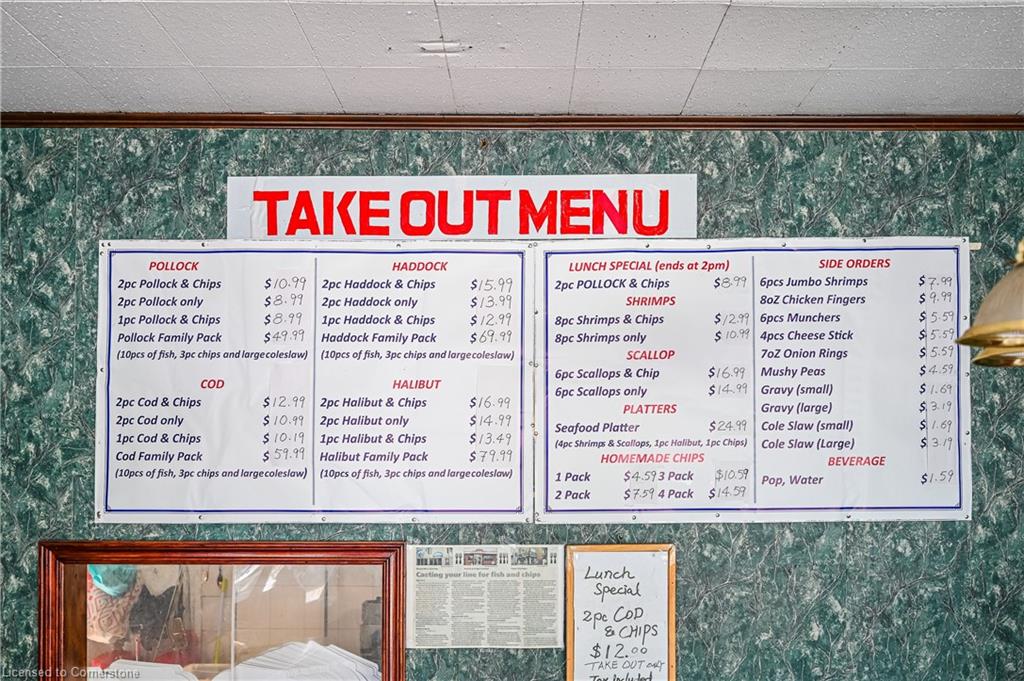 TAKE OUT MENU
POLLOCK
2pc Pollock & Chips $10.99
2pc Pollock only $8.99
1pc Pollock & Chips $8.99
Pollock Family Pack $49.99
(10pcs of fish, 3pc chips and largecoleslaw)
COD
2pc Cod & Chips $12.99
2pc Cod only $10.99
1pc Cod & Chips $10.19
Cod Family Pack $59.99
(10pcs of fish, 3pc chips and largecoleslaw)
HADDOCK
2pc Haddock & Chips $15.99
2pc Haddock only $13.99
1pc Haddock & Chips $12.99
Haddock Family Pack $69.99
(10pcs of fish, 3pc chips and largecoleslaw)
HALIBUT
2pc Halibut & Chips $16.99
2pc Halibut only $14.99
1pc Halibut & Chips $13.49
Halibut Family Pack $79.99
(10pcs of fish, 3pc chips and largecoleslaw)
LUNCH SPECIAL (ends at 2pm)
2pc POLLOCK & Chips $8.99
SHRIMPS
8pc Shrimps & Chips $12.99
8pc Shrimps only $10.99
SCALLOP
6pc Scallops & Chip $16.99
6pc Scallops only $14.99
PLATTERS
Seafood Platter $24.99
(4pc Shrimps & Scallops, 1pc Halibut, 1pc Chips)
HOMEMADE CHIPS
1 Pack $4.59 3 Pack $10.59
2 Pack $7.59 4 Pack $14.59
SIDE ORDERS
6pcs Jumbo Shrimps $7.99
8oZ Chicken Fingers $9.99
6pcs Munchers $5.59
4pcs Cheese Stick $5.59
7oZ Onion Rings $5.59
Mushy Peas $4.59
Gravy (small) $1.69
Gravy (large) $3.19
Cole Slaw (small) $1.69
Cole Slaw (Large) $3.19
BEVERAGE
Pop, Water $1.59
Casting your line for fish and chips
Lunch
Special
2pc COD
& CHIPS
$12.00
TAKE OUT only
Tax Included
Licensed to Cornerstone